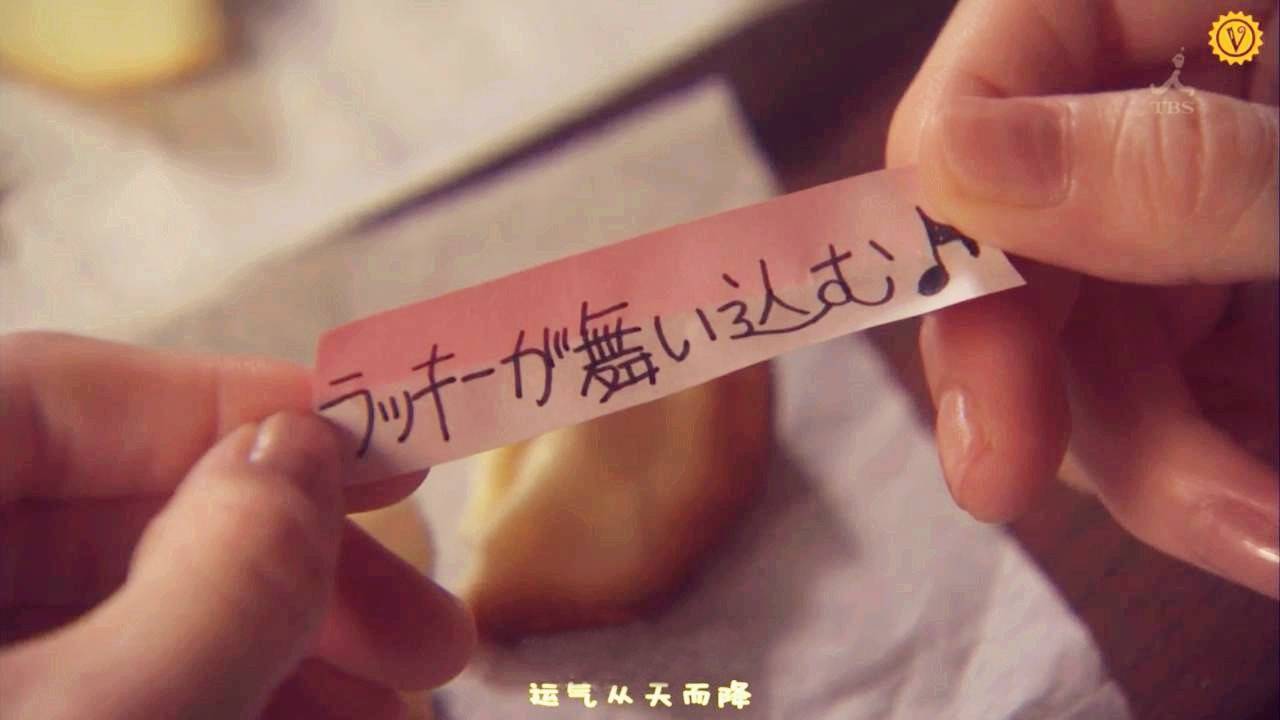 V
TBS
ラッキーが舞い込む♪
运气从天而降